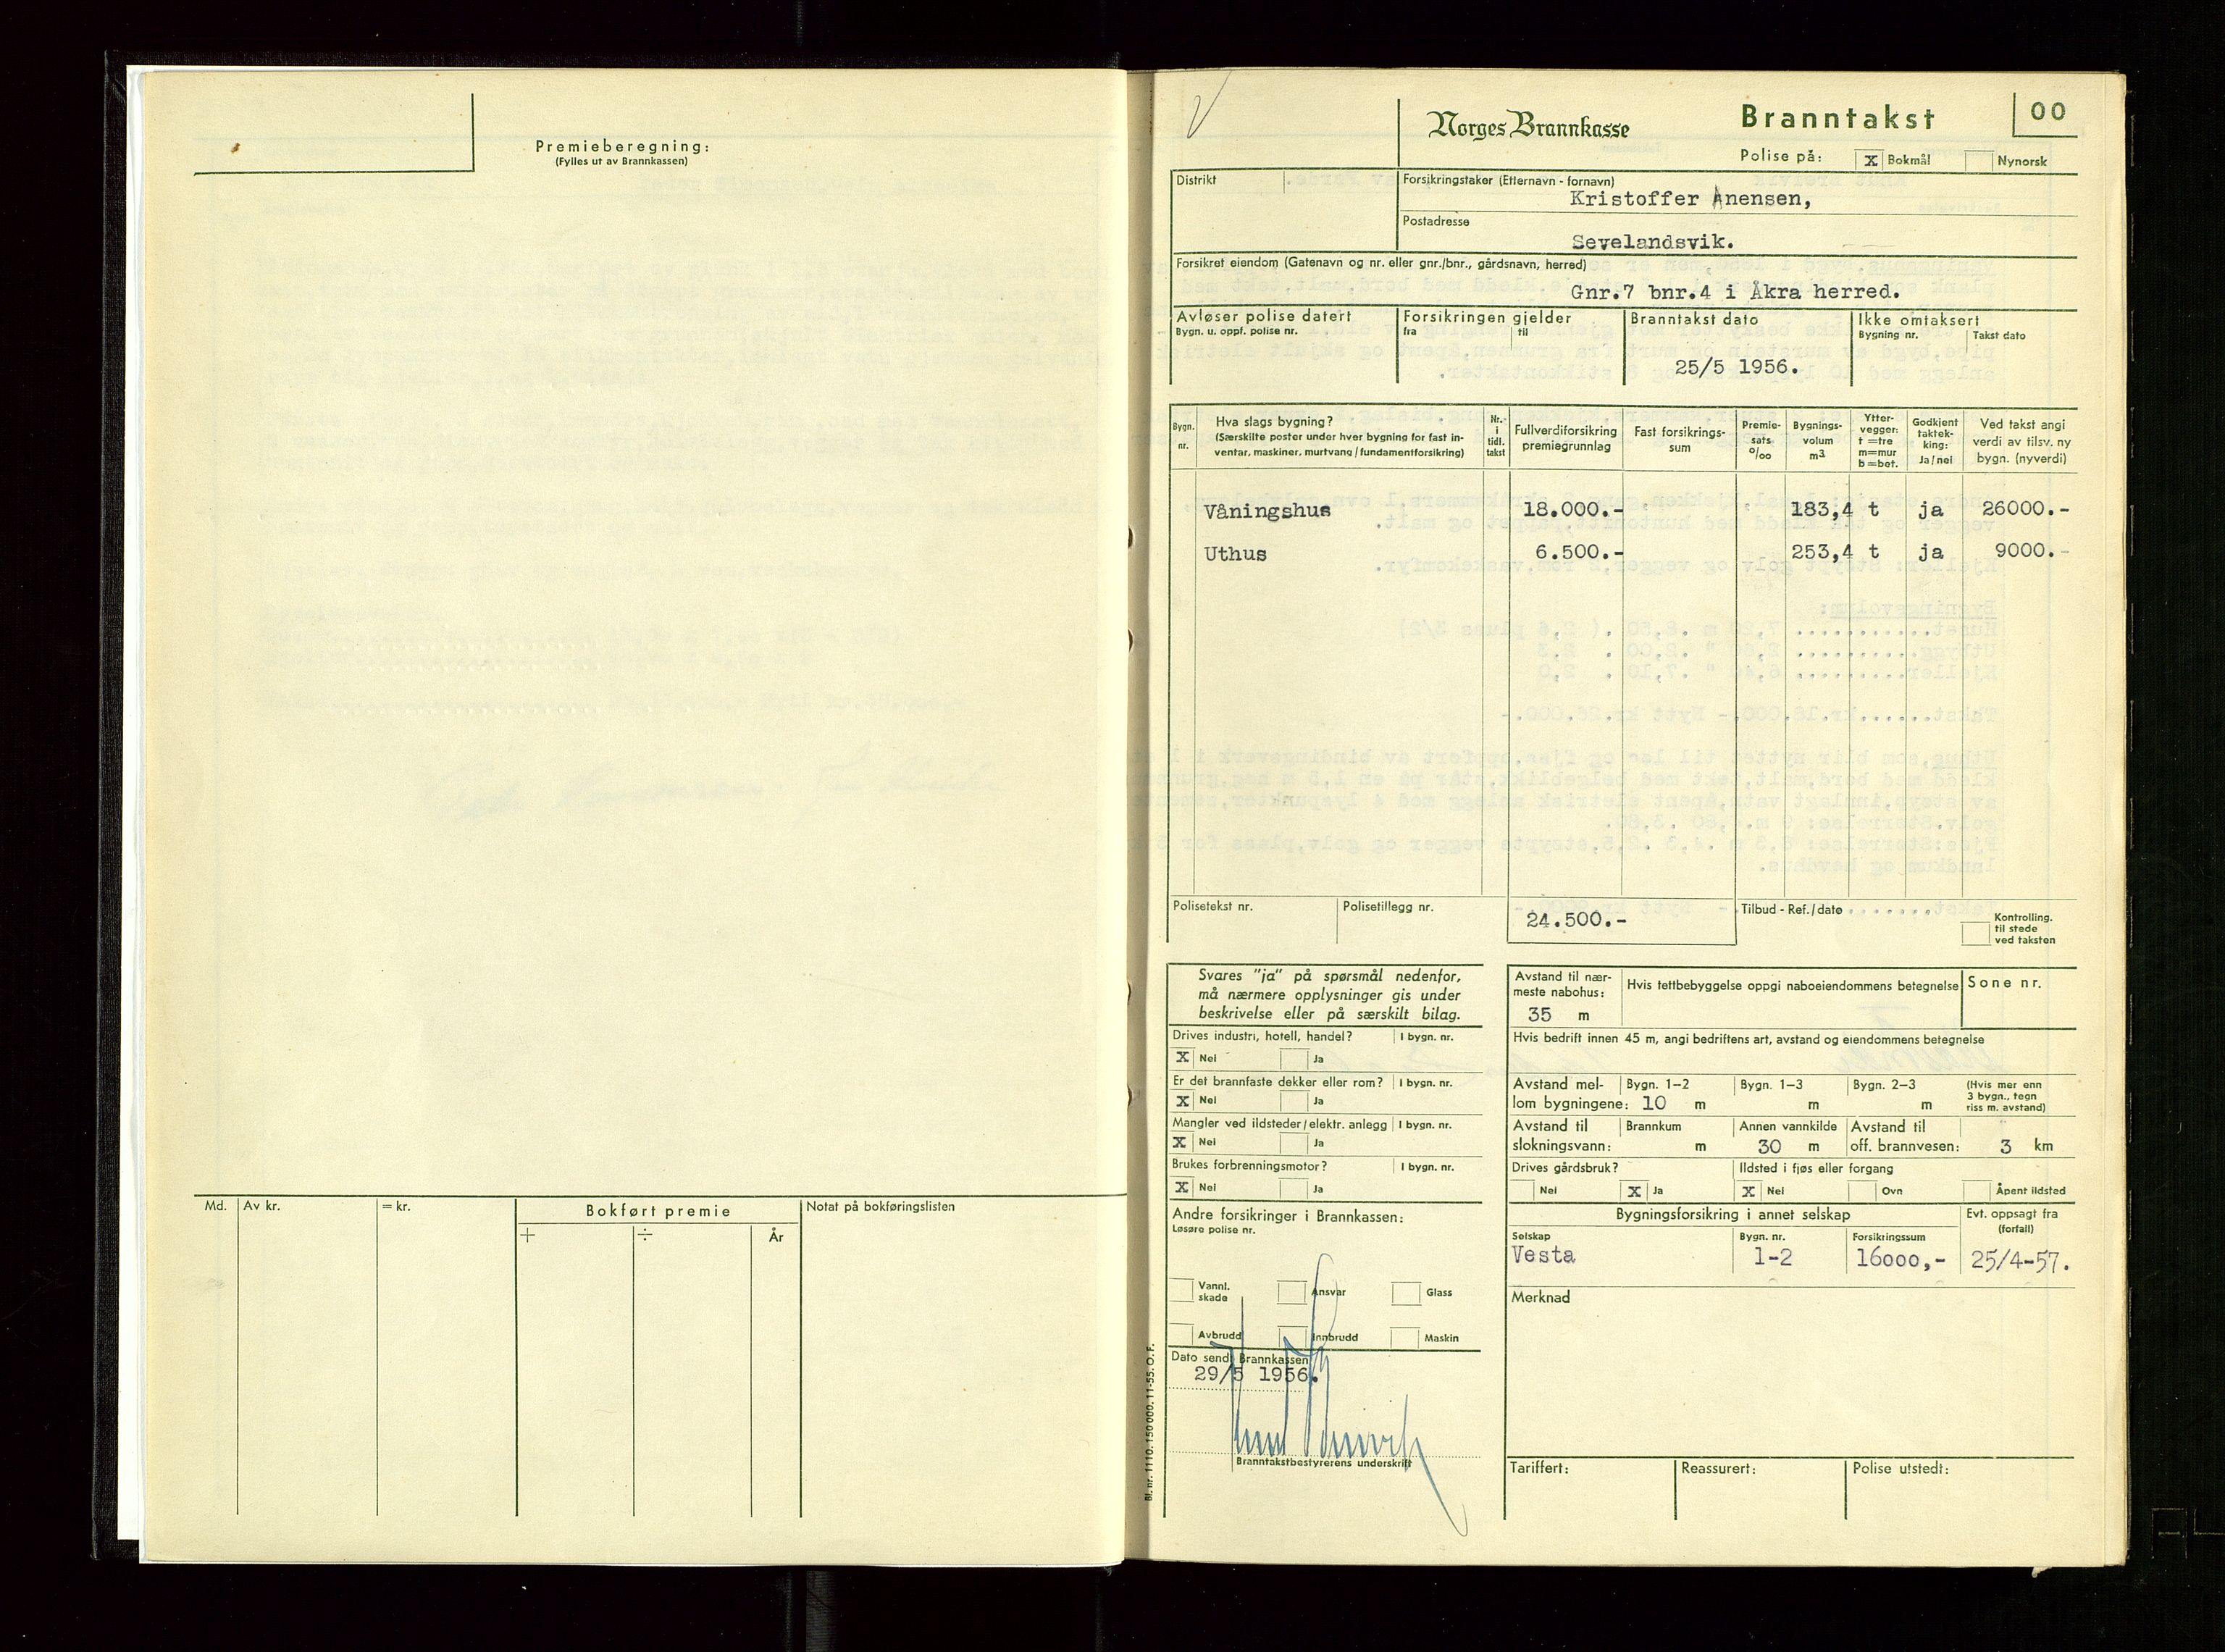 Premieberegning:
(Fylles ut av Brannkassen)
Md.
Av kr.
= kr.
Bokført premie
+
÷
År
Notat på bokføringslisten
Norges Brannkasse
Branntakst
00
Polise på:
X Bokmål
Nynorsk
Distrikt
Forsikringstaker (Etternavn - fornavn)
Kristoffer Anensen,
Postadresse
Sevelandsvik.
Forsikret eiendom (Gatenavn og nr. eller gnr./bnr., gårdsnavn, herred)
Gnr.7 bnr.4 i Åkra herred.
Avløser polise datert
Bygn. u. oppf. polise nr.
Forsikringen gjelder
fra til
Branntakst dato
25/5 1956.
Ikke omtaksert
Bygning nr. Takst dato
Bygn. nr.
Hva slags bygning?
(Særskilte poster under hver bygning for fast in-
ventar, maskiner, murtvang/fundamentforsikring)
Nr. i tidl. takst
Fullverdiforsikring
premiegrunnlag
Fast forsikrings-
sum
Premie-
sats
o/oo
Bygnings-
volum
m3
Ytter-
vegger:
t =tre
m=mur
b =bet.
Godkjent
taktek-
king:
Ja/nei
Ved takst angi
verdi av tilsv. ny
bygn. (nyverdi)
Våningshus 18.000.- 183,4 t ja 26000.-
Uthus 6.500.- 253,4 t ja 9000.-
Polisetekst nr.
Polisetillegg nr.
24.500.-
Tilbud - Ref./dato
Kontrolling.
til stede
ved taksten
Svares "ja" på spørsmål nedenfor,
må nærmere opplysninger gis under
beskrivelse eller på særskilt bilag.
Drives industri, hotell, handel? I bygn. nr.
X Nei Ja
Er det brannfaste dekker eller rom? I bygn. nr.
X Nei Ja
Mangler ved ildsteder/elektr. anlegg I bygn. nr.
X Nei Ja
Brukes forbrenningsmotor? I bygn. nr.
X Nei Ja
Andre forsikringer i Brannkassen:
Løsøre polise nr.
Vannl.
skade
Ansvar
Glass
Avbrudd
Innbrudd
Maskin
Dato sendt Brannkassen
29/5 1956.
Branntakstbestyrerens underskrift
Bl. nr. 1110. 150 000. 11-55. O. F.
Avstand til nær-
meste nabohus:
35 m
Hvis tettbebyggelse oppgi naboeiendommens betegnelse
Sone nr.
Hvis bedrift innen 45 m, angi bedriftens art, avstand og eiendommens betegnelse
Avstand mel-
lom bygningene:
Bygn. 1-2
10 m
Bygn. 1-3
m
Bygn. 2-3
m
(Hvis mer enn
3 bygn., tegn
riss m. avstand)
Avstand til
slokningsvann:
Brannkum
m
Annen vannkilde
30 m
Avstand til
off. brannvesen:
3 km
Drives gårdsbruk?
Nei X Ja
Ildsted i fjøs eller forgang
X Nei Ovn Åpent ildsted
Bygningsforsikring i annet selskap
Evt. oppsagt fra
(forfall)
Selskap
Vesta
Bygn. nr.
1-2
Forsikringssum
16000,-
25/4-57.
Merknad
Tariffert:
Reassurert:
Polise utstedt: